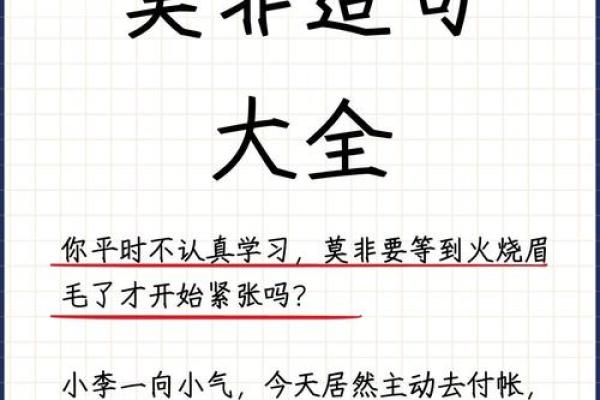 莫非造句
大全
你平时不认真学习，莫非要等到火烧眉
毛了才开始紧张吗？
小李一向小气，今天居然主动去付帐，